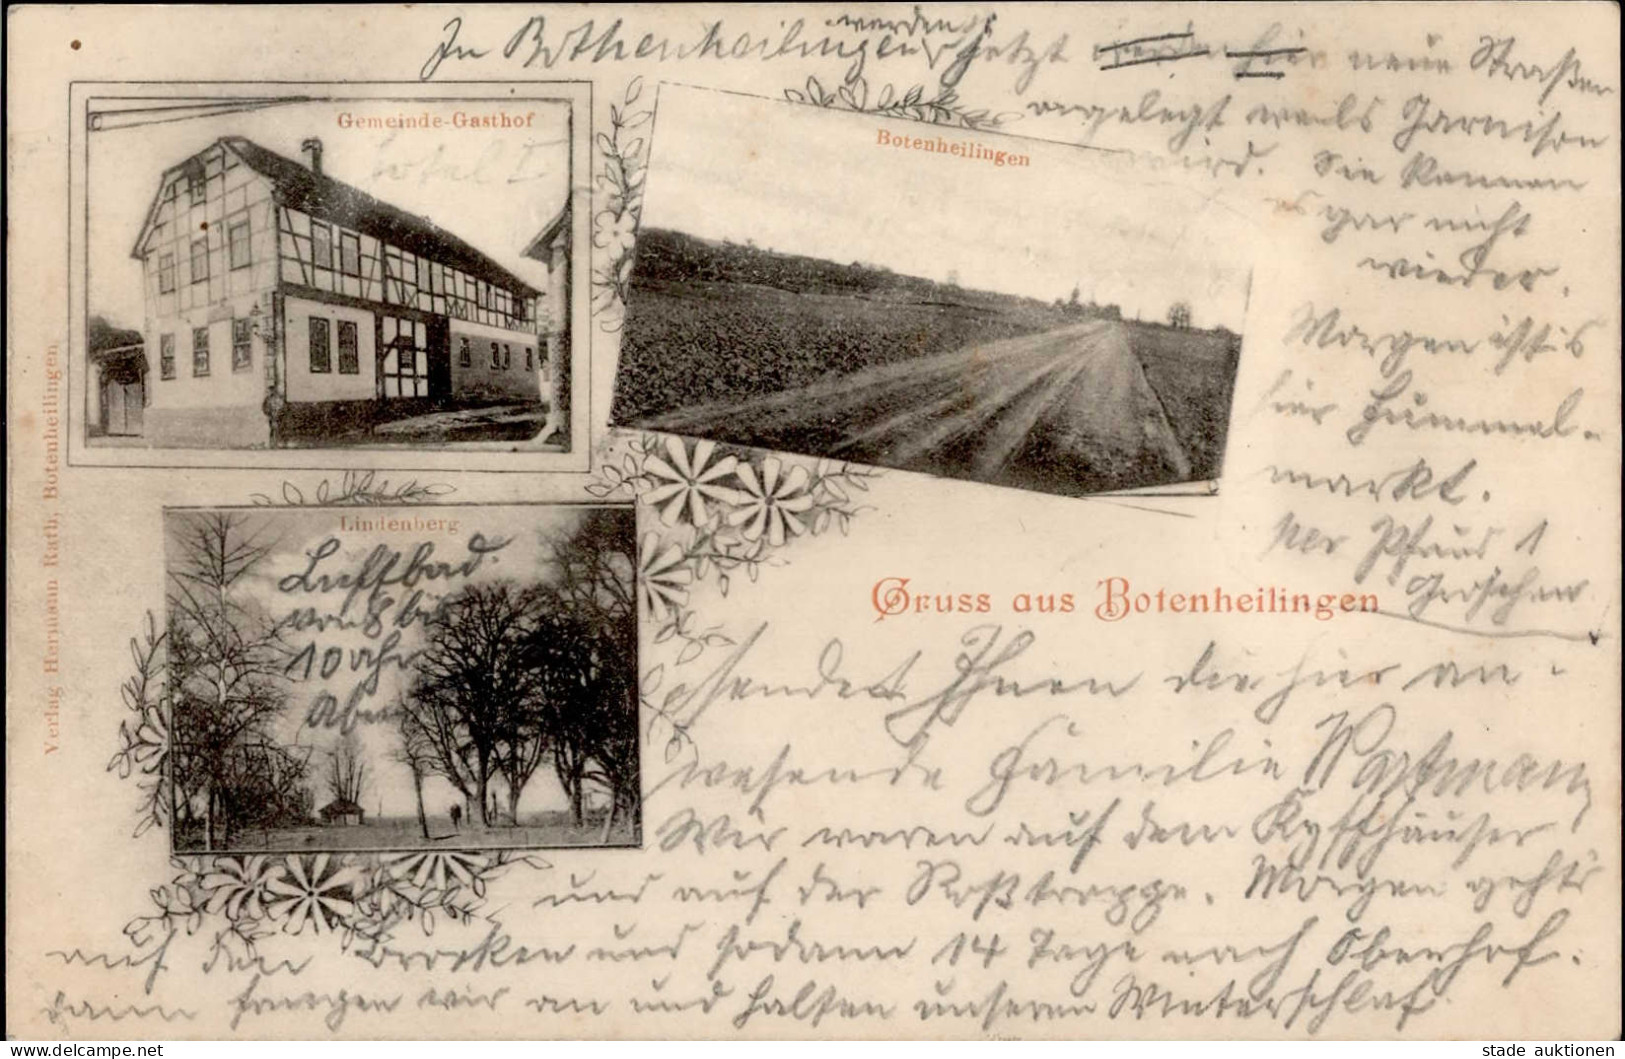 In Bothenheilingen werden jetzt werden hier neue Straßen
angelegt weils Garnison
wird. Sie kennen
es gar nicht
wieder.
Morgen ist
hier Hummel-
markt.
per Pfund 1
Groschen
Gemeinde-Gasthof
Hotel I
Botenheilingen
Lindenberg
Luftbad
von 8 bis
10 Uhr
Abends
Verlag Hermann Rath, Botenheilingen
Gruss aus Botenheilingen
sendet Ihnen die hier an-
wesende Familie Wortmann
Wir waren auf dem Kyffhäuser
und auf der Roßtrappe. Morgen gehts
auf den Brocken und sodann 14 Tage nach Oberhof.
dann fangen wir an und halten unseren Winterschlaf.
stade auktionen